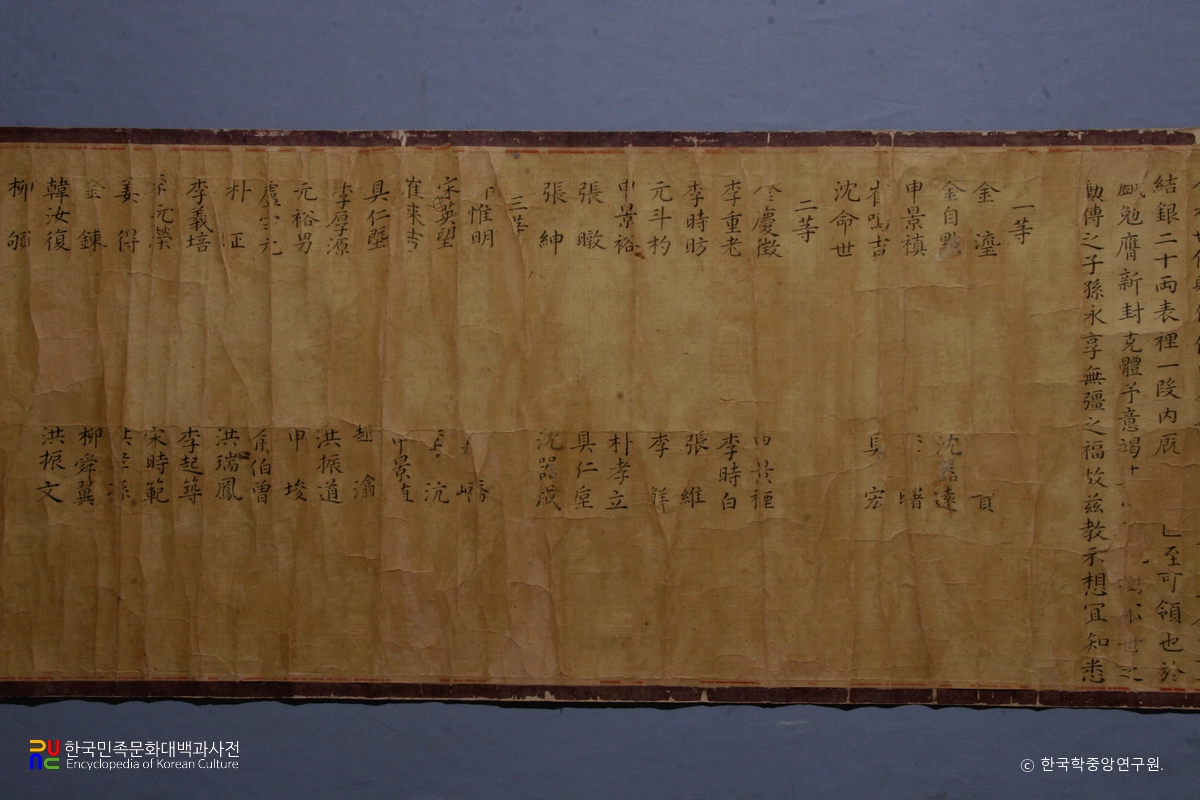 結銀二十兩表裡一段內廐 至可領也於
勉膺新封克體予意竭 世之
勳傳之子孫永享無疆之福故玆敎示想宜知悉
一等
金瀣
金自點 沈器遠
申景禛
崔鳴吉 具宏
沈命世
二等
慶徵
李重老 李時白
李時昉 張維
元斗杓 李
申景裕 朴孝立
張暾 具仁垕
張紳 沈器成
三等
惟明
宋英望 沆
崔來吉 申景植
具仁墍 趙潝
李厚源 洪振道
元裕男 申埈
盧守元 伯曾
朴炡 洪瑞鳳
李義培 李起築
元榮 宋時範
姜得
金鍊 柳舜翼
韓汝復 洪振文
柳
한국민족문화대백과사전
Encyclopedia of Korean Culture
ⓒ 한국학중앙연구원.